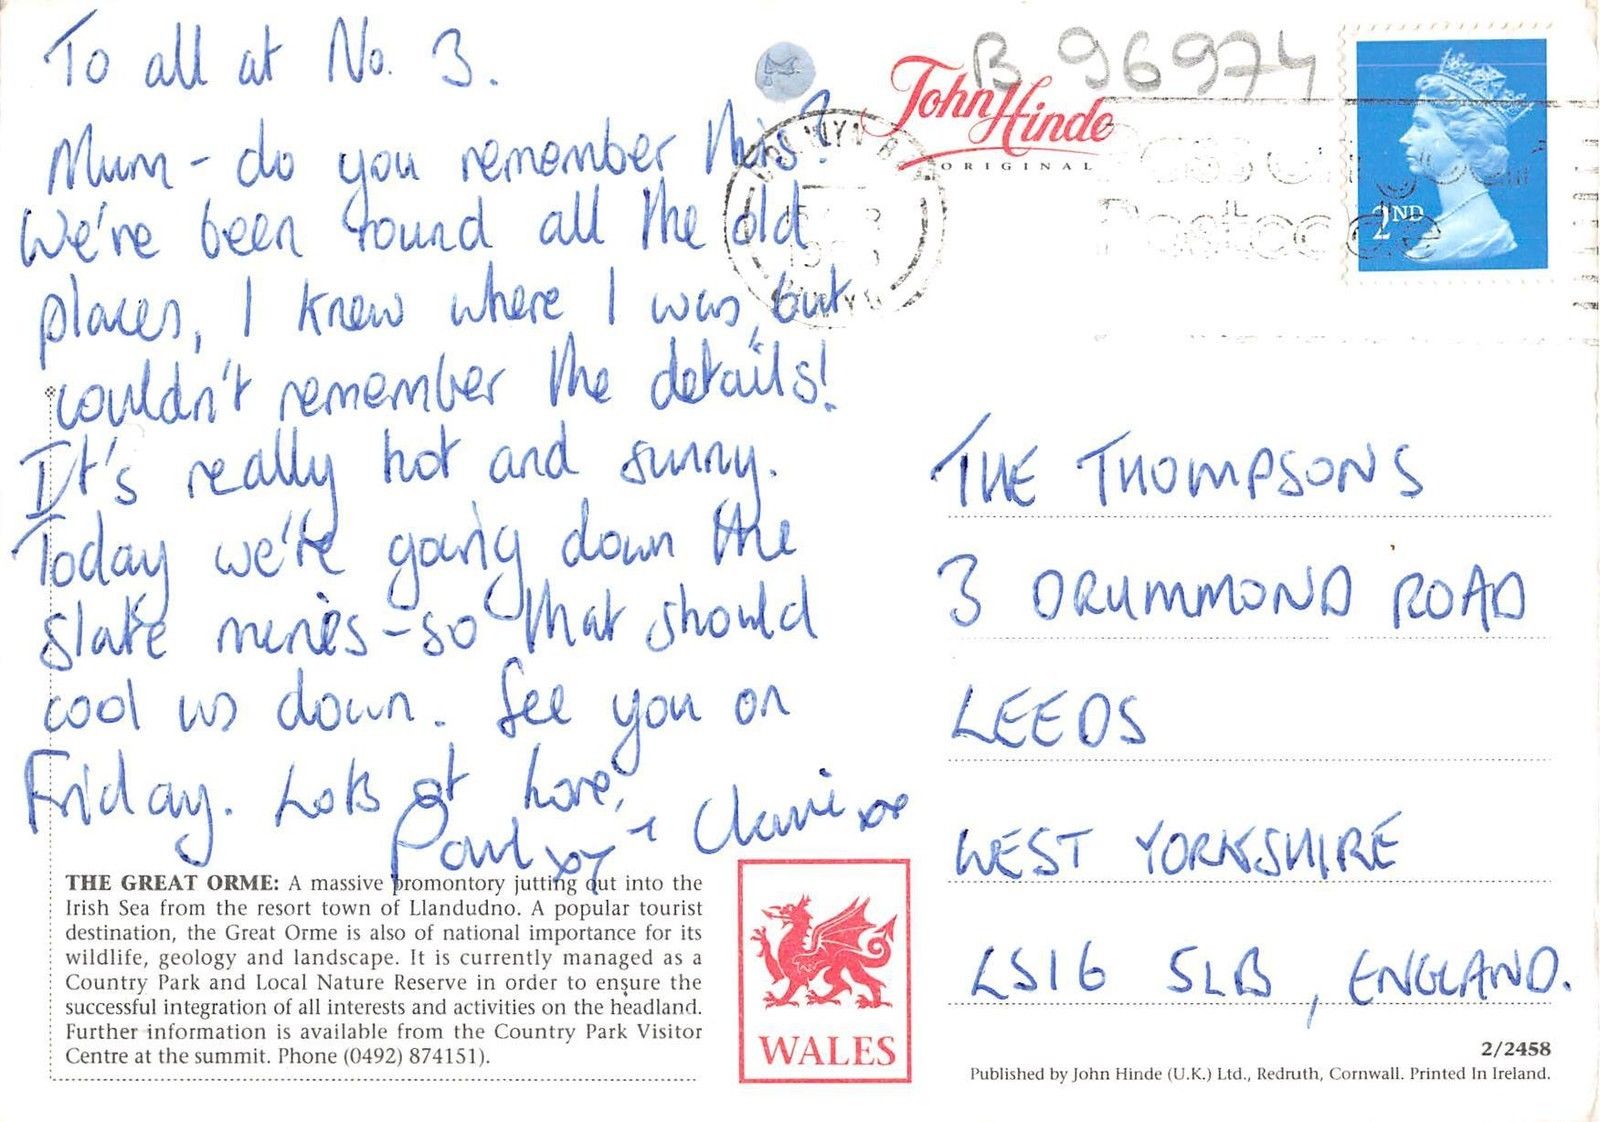 To all at No. 3.
Mum - do you remember this?
We've been round all the old
places, I knew where I was, but
couldn't remember the details!
It's really hot and sunny.
Today we're going down the
slate mines - so that should
cool us down. See you on
Friday. Lots of Love,
Paul xx + Claire xx
THE GREAT ORME: A massive promontory jutting out into the
Irish Sea from the resort town of Llandudno. A popular tourist
destination, the Great Orme is also of national importance for its
wildlife, geology and landscape. It is currently managed as a
Country Park and Local Nature Reserve in order to ensure the
successful integration of all interests and activities on the headland.
Further information is available from the Country Park Visitor
Centre at the summit. Phone (0492) 874151).
WALES
B 96974
John Hinde
ORIGINAL
Postcode
2ND
THE THOMPSONS
3 DRUMMOND ROAD
LEEDS
WEST YORKSHIRE
LS16 5LB, ENGLAND.
2/2458
Published by John Hinde (U.K.) Ltd., Redruth, Cornwall. Printed In Ireland.